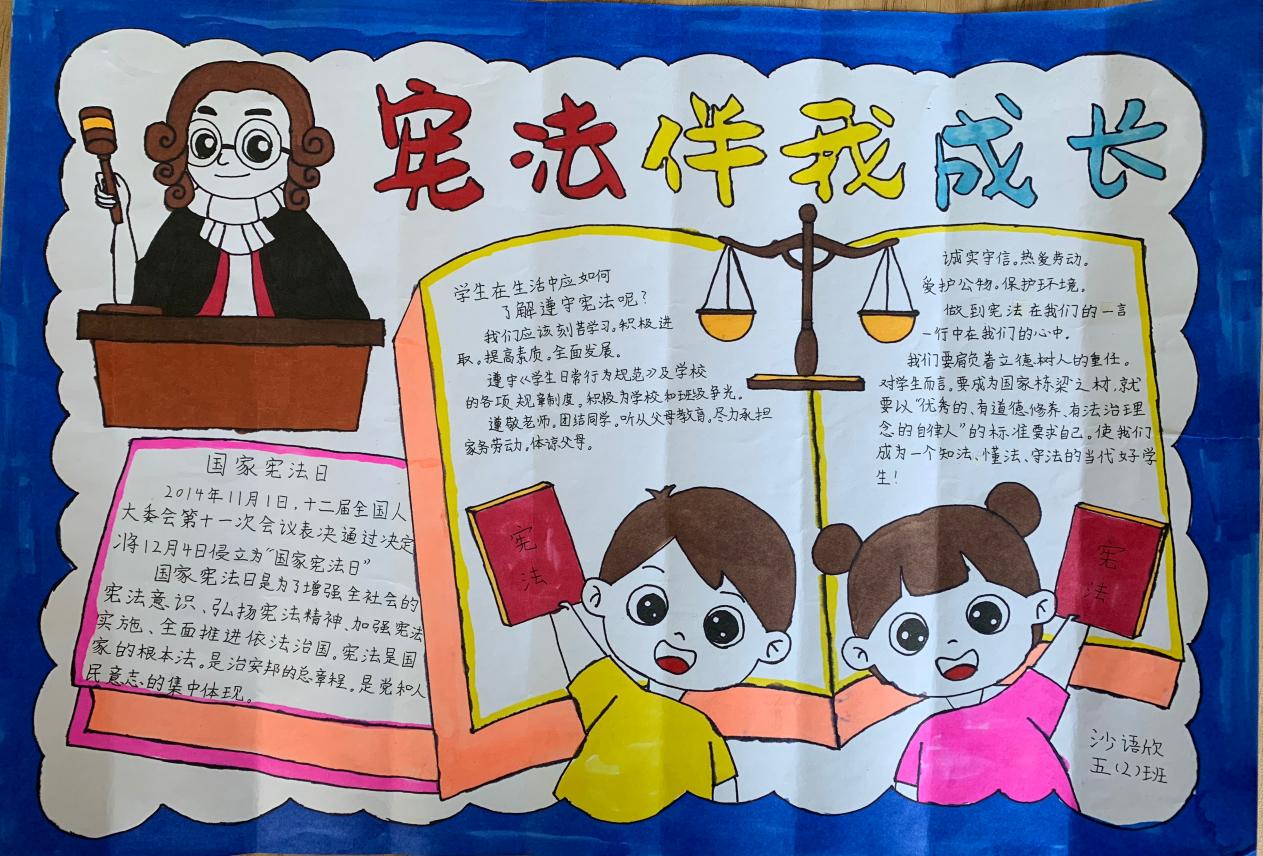 宪法伴我成长
学生在生活中应如何
了解遵守宪法呢?
我们应该刻苦学习。积极进
取。提高素质。全面发展。
遵守《学生日常行为规范》及学校
的各项规章制度。积极为学校和班级争光。
遵敬老师。团结同学。听从父母教育。尽力承担
家务劳动。体谅父母。
诚实守信。热爱劳动。
爱护公物。保护环境。
做到宪法在我们的一言
一行中在我们的心中。
我们要肩负着立德树人的重任。
对学生而言。要成为国家栋梁之材,就
要以“优秀的、有道德修养、有法治理
念的自律人”的标准要求自己。使我们
成为一个知法、懂法、守法的当代好学
生!
国家宪法日
2014年11月1日,十二届全国人
大委会第十一次会议表决通过决定
将12月4日侵立为“国家宪法日”
国家宪法日是为了增强全社会的
宪法意识、弘扬宪法精神、加强宪法
实施、全面推进依法治国。宪法是国
家的根本法。是治安邦的总章程。是党和人
民意志的集中体现。
宪
法
宪
法
沙语欣
五(2)班